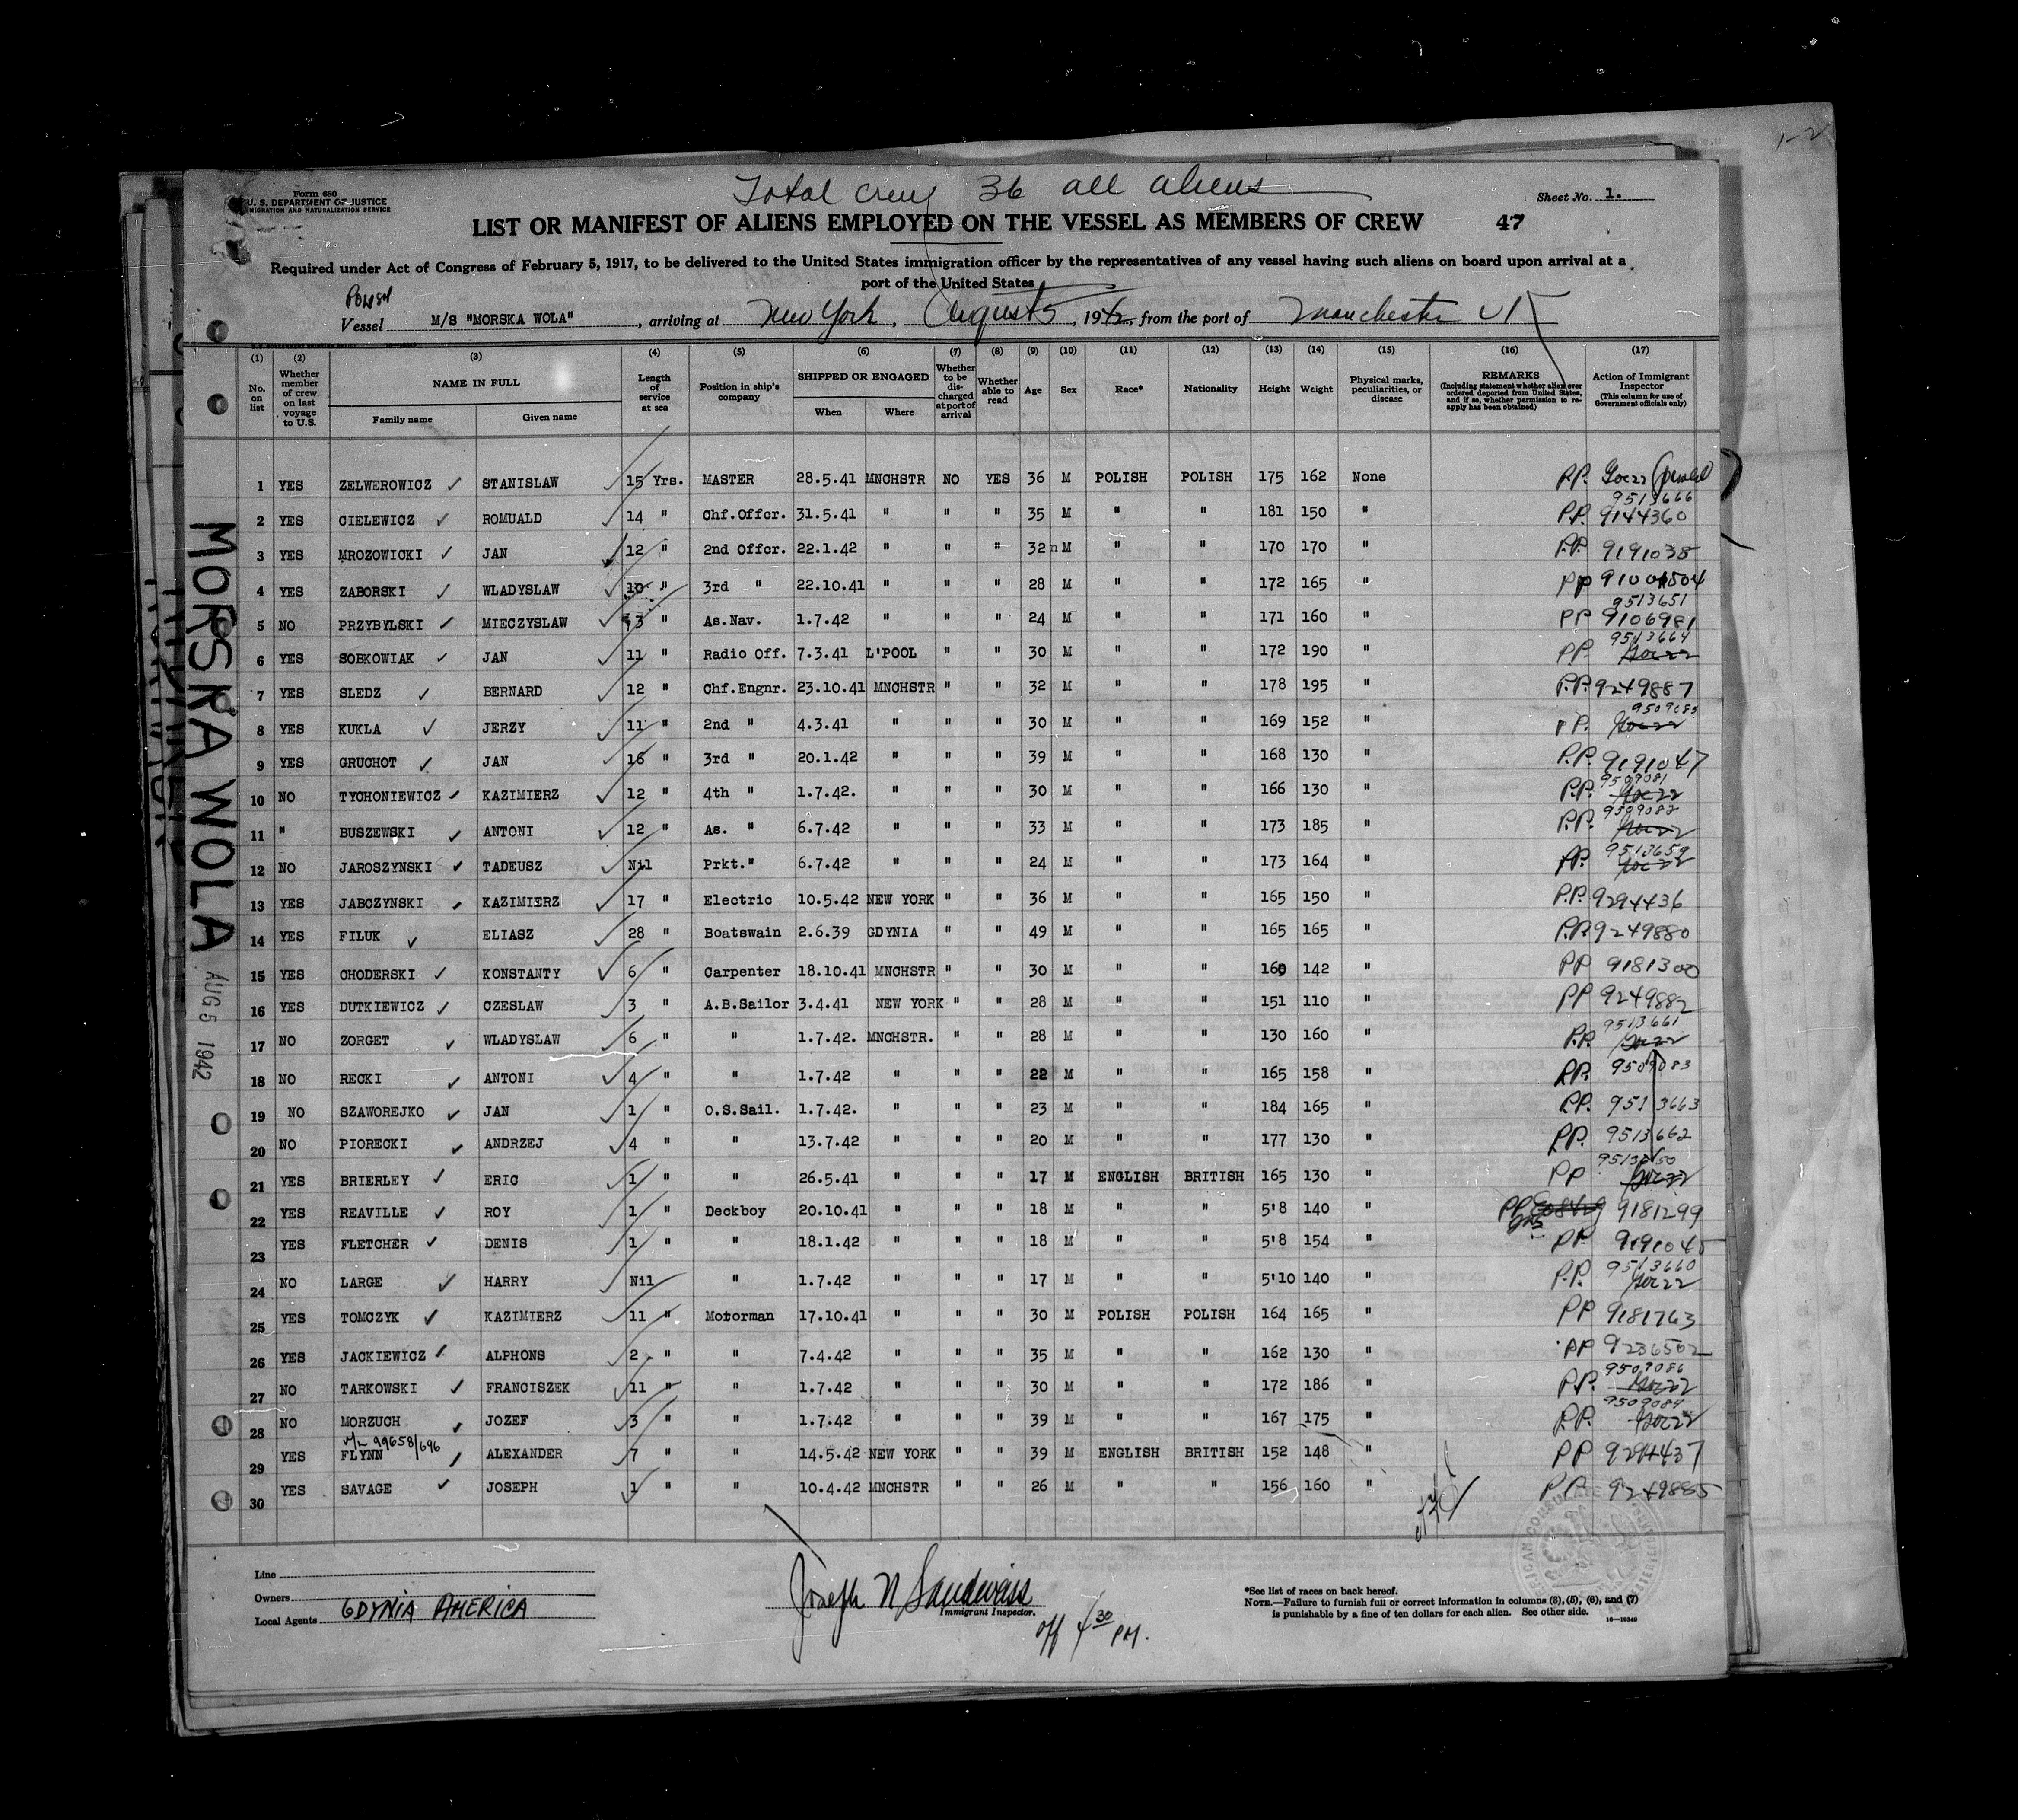 Total Crew 36 all aliens
Form 680
U. S. DEPARTMENT OF JUSTICE
IMMIGRATION AND NATURALIZATION SERVICE
Sheet No. 1.
LIST OR MANIFEST OF ALIENS EMPLOYED ON THE VESSEL AS MEMBERS OF CREW 47
Required under Act of Congress of February 5, 1917, to be delivered to the United States immigration officer by the representatives of any vessel having such aliens on board upon arrival at a
port of the United States
Polish
Vessel M/S "MORSKA WOLA", arriving at New York, August 5, 1942, from the port of Manchester UK
(1) (2) (3) (4) (5) (6) (7) (8) (9) (10) (11) (12) (13) (14) (15) (16) (17)
No. on list Whether member of crew on last voyage to U.S. NAME IN FULL Family name Given name Length of service at sea Position in ship's company SHIPPED OR ENGAGED When Where Whether to be discharged at port of arrival Whether able to read Age Sex Race* Nationality Height Weight Physical marks, peculiarities, or disease REMARKS (Including statement whether alien ever ordered deported from United States, and if so, whether permission to reapply has been obtained) Action of Immigrant Inspector (This column for use of Government officials only)
1 YES ZELWEROWICZ STANISLAW 15 Yrs. MASTER 28.5.41 MNCHSTR NO YES 36 M POLISH POLISH 175 162 None PP.
2 YES CIELEWICZ ROMUALD 14 " Chf.Offcr. 31.5.41 " " " 35 M " " 181 150 " PP. 9513666 9144360
3 YES MROZOWICKI JAN 12 " 2nd Offcr. 22.1.42 " " " 32 M " " 170 170 " PP. 9191038
4 YES ZABORSKI WLADYSLAW 10 " 3rd " 22.10.41 " " " 28 M " " 172 165 " PP
5 NO PRZYBYLSKI MIECZYSLAW 3 " As.Nav. 1.7.42 " " " 24 M " " 171 160 " PP 9513651 9106981
6 YES SOBKOWIAK JAN 11 " Radio Off. 7.3.41 L'POOL " " 30 M " " 172 190 " PP. 9513664
7 YES SLEDZ BERNARD 12 " Chf.Engnr. 23.10.41 MNCHSTR " " 32 M " " 178 195 " P.P. 9249887
8 YES KUKLA JERZY 11 " 2nd " 4.3.41 " " " 30 M " " 169 152 " PP.
9 YES GRUCHOT JAN 16 " 3rd " 20.1.42 " " " 39 M " " 168 130 " P.P. 9191047
10 NO TYCHONIEWICZ KAZIMIERZ 12 " 4th " 1.7.42. " " " 30 M " " 166 130 " P.P. 9509081
11 " BUSZEWSKI ANTONI 12 " As. " 6.7.42 " " " 33 M " " 173 185 " P.P. 9509082
12 NO JAROSZYNSKI TADEUSZ Nil Prkt." 6.7.42 " " " 24 M " " 173 164 " PP. 9513659
13 YES JABCZYNSKI KAZIMIERZ 17 " Electric 10.5.42 NEW YORK " " 36 M " " 165 150 " P.P. 9294436
14 YES FILUK ELIASZ 28 " Boatswain 2.6.39 GDYNIA " " 49 M " " 165 165 " P.P. 9249880
15 YES CHODERSKI KONSTANTY 6 " Carpenter 18.10.41 MNCHSTR " " 30 M " " 160 142 " PP 9181300
16 YES DUTKIEWICZ CZESLAW 3 " A.B.Sailor 3.4.41 NEW YORK " " 28 M " " 151 110 " PP 9249882
17 NO ZORGET WLADYSLAW 6 " " 1.7.42. MNCHSTR. " " 28 M " " 130 160 " P.P. 9513661
18 NO RECKI ANTONI 4 " " 1.7.42 " " " 22 M " " 165 158 " P.P. 9509083
19 NO SZAWOREJKO JAN 1 " O.S.Sail. 1.7.42. " " " 23 M " " 184 165 " P.P. 9513663
20 NO PIORECKI ANDRZEJ 4 " " 13.7.42 " " " 20 M " " 177 130 " P.P. 9513662
21 YES BRIERLEY ERIC 1 " " 26.5.41 " " " 17 M ENGLISH BRITISH 165 130 " PP
22 YES REAVILLE ROY 1 " Deckboy 20.10.41 " " " 18 M " " 5'8 140 " PP 9181299
23 YES FLETCHER DENIS 1 " " 18.1.42 " " " 18 M " " 5'8 154 " PP 9191045
24 NO LARGE HARRY Nil " 1.7.42 " " " 17 M " " 5'10 140 " P.P. 9513660
25 YES TOMCZYK KAZIMIERZ 11 " Motorman 17.10.41 " " " 30 M POLISH POLISH 164 165 " PP 9181763
26 YES JACKIEWICZ ALPHONS 2 " " 7.4.42 " " " 35 M " " 162 130 " PP 9236502
27 NO TARKOWSKI FRANCISZEK 11 " " 1.7.42 " " " 30 M " " 172 186 " P.P. 9509086
28 NO MORZUCH JOZEF 3 " " 1.7.42 " " " 39 M " " 167 175 " P.P. 9509084
99658/696
29 YES FLYNN ALEXANDER 7 " " 14.5.42 NEW YORK " " 39 M ENGLISH BRITISH 152 148 " PP 9294437
30 YES SAVAGE JOSEPH 1 " " 10.4.42 MNCHSTR " " 26 M " " 156 160 " P.P. 9249885
MORSKA WOLA
AUG 5 1942
Line
Owners
Local Agents GDYNIA AMERICA
Joseph N Sandwass
Immigrant Inspector.
off 4 30 PM.
*See list of races on back hereof.
NOTE.—Failure to furnish full or correct information in columns (3), (5), (6), and (7)
is punishable by a fine of ten dollars for each alien. See other side. 16—10349